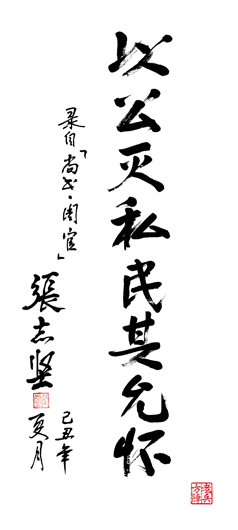 以公灭私民其允怀
录自「尚书·周官」
張志坚
己丑年
夏月